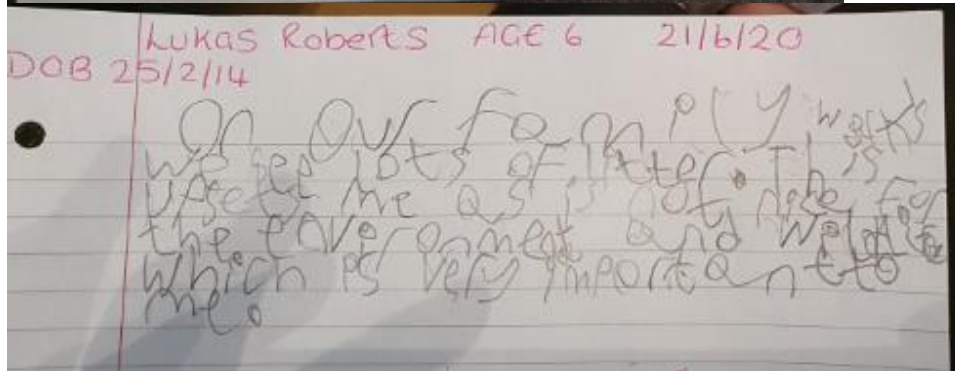 Lukas Roberts AGE 6 21/6/20
DOB 25/2/14
On Our family walks
we see lots of litter. This
upsets me as is not nice for
the enveronment and
which is very important to
me.